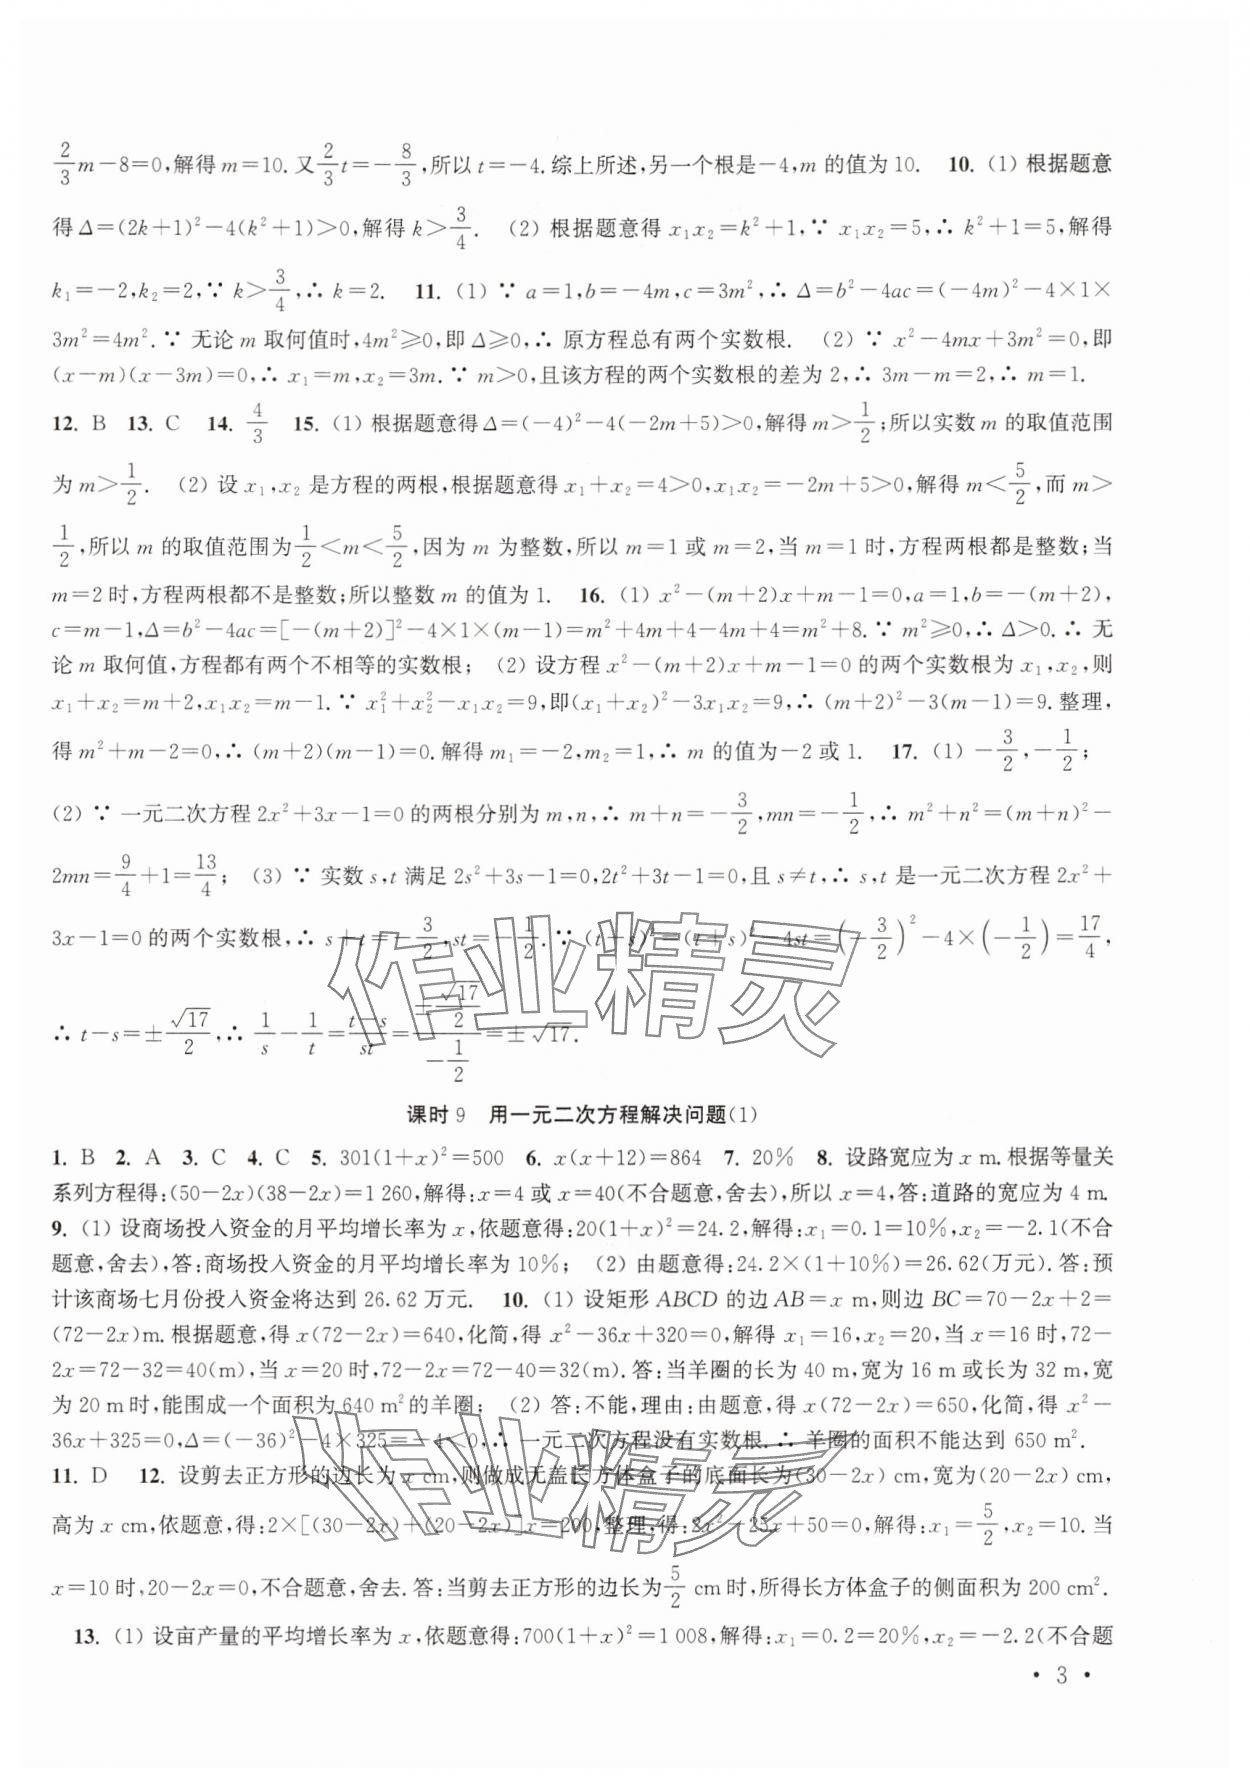 2/3 m－8＝0,解得 m＝10. 又 2/3 t＝－8/3,所以 t＝－4. 综上所述,另一个根是－4,m 的值为 10. 10. (1) 根据题意
得 Δ＝(2k＋1)²－4(k²＋1)＞0,解得 k＞3/4. (2) 根据题意得 x₁x₂＝k²＋1,∵ x₁x₂＝5,∴ k²＋1＝5,解得
k₁＝－2,k₂＝2,∵ k＞3/4,∴ k＝2. 11. (1) ∵ a＝1,b＝－4m,c＝3m²,∴ Δ＝b²－4ac＝(－4m)²－4×1×
3m²＝4m². ∵ 无论 m 取何值时,4m²≥0,即 Δ≥0,∴ 原方程总有两个实数根. (2) ∵ x²－4mx＋3m²＝0,即
(x－m)(x－3m)＝0,∴ x₁＝m,x₂＝3m. ∵ m＞0,且该方程的两个实数根的差为 2,∴ 3m－m＝2,∴ m＝1.
12. B 13. C 14. 4/3 15. (1) 根据题意得 Δ＝(－4)²－4(－2m＋5)＞0,解得 m＞1/2;所以实数 m 的取值范围
为 m＞1/2. (2) 设 x₁,x₂ 是方程的两根,根据题意得 x₁＋x₂＝4＞0,x₁x₂＝－2m＋5＞0,解得 m＜5/2,而 m＞
1/2,所以 m 的取值范围为 1/2＜m＜5/2,因为 m 为整数,所以 m＝1 或 m＝2,当 m＝1 时,方程两根都是整数;当
m＝2 时,方程两根都不是整数;所以整数 m 的值为 1. 16. (1) x²－(m＋2)x＋m－1＝0,a＝1,b＝－(m＋2),
c＝m－1,Δ＝b²－4ac＝[－(m＋2)]²－4×1×(m－1)＝m²＋4m＋4－4m＋4＝m²＋8. ∵ m²≥0,∴ Δ＞0. ∴ 无
论 m 取何值,方程都有两个不相等的实数根; (2) 设方程 x²－(m＋2)x＋m－1＝0 的两个实数根为 x₁,x₂,则
x₁＋x₂＝m＋2,x₁x₂＝m－1. ∵ x₁²＋x₂²－x₁x₂＝9,即(x₁＋x₂)²－3x₁x₂＝9,∴ (m＋2)²－3(m－1)＝9. 整理,
得 m²＋m－2＝0,∴ (m＋2)(m－1)＝0. 解得 m₁＝－2,m₂＝1,∴ m 的值为－2 或 1. 17. (1) －3/2,－1/2;
(2) ∵ 一元二次方程 2x²＋3x－1＝0 的两根分别为 m,n,∴ m＋n＝－3/2,mn＝－1/2,∴ m²＋n²＝(m＋n)²－
2mn＝9/4＋1＝13/4; (3) ∵ 实数 s,t 满足 2s²＋3s－1＝0,2t²＋3t－1＝0,且 s≠t,∴ s,t 是一元二次方程 2x²＋
3x－1＝0 的两个实数根,∴ s＋t＝－3/2,st＝－1/2. ∵ (t－s)²＝(t＋s)²－4st＝(－3/2)²－4×(－1/2)＝17/4,
∴ t－s＝±√17/2,∴ 1/s－1/t＝(t－s)/st＝(±√17/2)/(－1/2)＝±√17.
课时 9 用一元二次方程解决问题(1)
1. B 2. A 3. C 4. C 5. 301(1＋x)²＝500 6. x(x＋12)＝864 7. 20% 8. 设路宽应为 x m. 根据等量关
系列方程得:(50－2x)(38－2x)＝1 260,解得:x＝4 或 x＝40(不合题意,舍去),所以 x＝4,答:道路的宽应为 4 m.
9. (1) 设商场投入资金的月平均增长率为 x,依题意得:20(1＋x)²＝24.2,解得:x₁＝0.1＝10%,x₂＝－2.1(不合
题意,舍去),答:商场投入资金的月平均增长率为 10%; (2) 由题意得:24.2×(1＋10%)＝26.62(万元). 答:预
计该商场七月份投入资金将达到 26.62 万元. 10. (1) 设矩形 ABCD 的边 AB＝x m,则边 BC＝70－2x＋2＝
(72－2x)m. 根据题意,得 x(72－2x)＝640,化简,得 x²－36x＋320＝0,解得 x₁＝16,x₂＝20,当 x＝16 时,72－
2x＝72－32＝40(m),当 x＝20 时,72－2x＝72－40＝32(m). 答:当羊圈的长为 40 m,宽为 16 m 或长为 32 m,宽
为 20 m 时,能围成一个面积为 640 m² 的羊圈; (2) 答:不能,理由:由题意,得 x(72－2x)＝650,化简,得 x²－
36x＋325＝0,Δ＝(－36)²－4×325＝－4＜0,∴ 一元二次方程没有实数根. ∴ 羊圈的面积不能达到 650 m².
11. D 12. 设剪去正方形的边长为 x cm,则做成无盖长方体盒子的底面长为(30－2x) cm,宽为(20－2x) cm,
高为 x cm,依题意,得:2×[(30－2x)＋(20－2x)]x＝200,整理,得:2x²－25x＋50＝0,解得:x₁＝5/2,x₂＝10. 当
x＝10 时,20－2x＝0,不合题意,舍去. 答:当剪去正方形的边长为 5/2 cm 时,所得长方体盒子的侧面积为 200 cm².
13. (1) 设亩产量的平均增长率为 x,依题意得:700(1＋x)²＝1 008,解得:x₁＝0.2＝20%,x₂＝－2.2(不合题
• 3 •
作业精灵
作业精灵